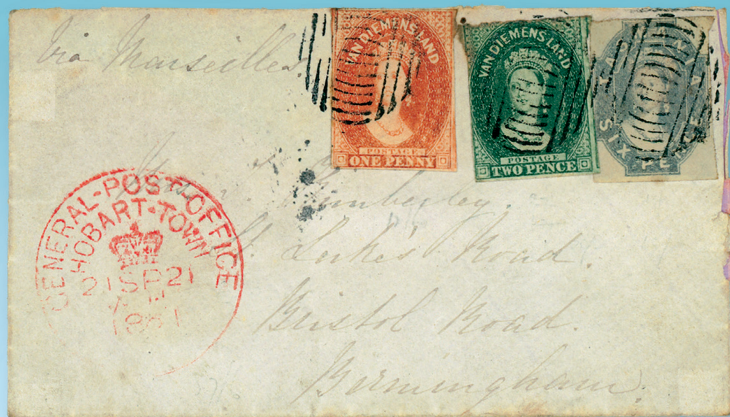 Via Marseilles
VAN DIEMENS LAND
POSTAGE
ONE PENNY
VAN DIEMENS LAND
POSTAGE
TWO PENCE
GENERAL-POST-OFFICE
HOBART-TOWN
21 SP 21
Lukes Road.
Bristol Road.
Birmingham.